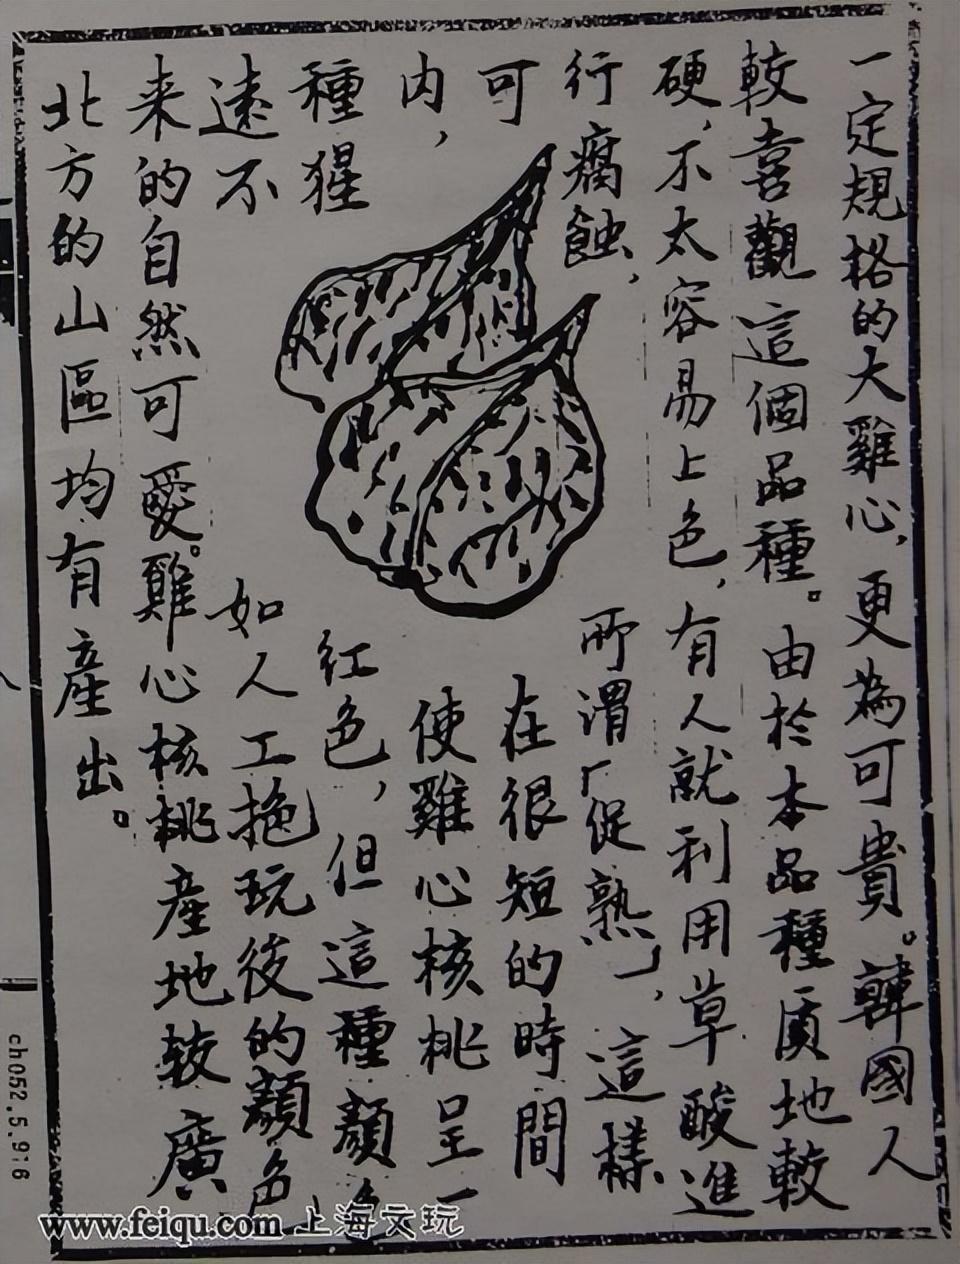 一定規格的大雞心，更為可貴。韓國人
較喜觀這個品種。由於本品種质地較
硬，不太容易上色，有人就利用草酸進
行腐蝕，所謂「促熟」，這樣
可在很短的時間
内，使雞心核桃呈一
種猩红色，但這種顏色
遠不如人工挽玩後的顏色
来的自然可愛。雞心核桃產地較廣
北方的山區均有產出。
ch052.5.9:6
www.feiqu.com 上海文玩